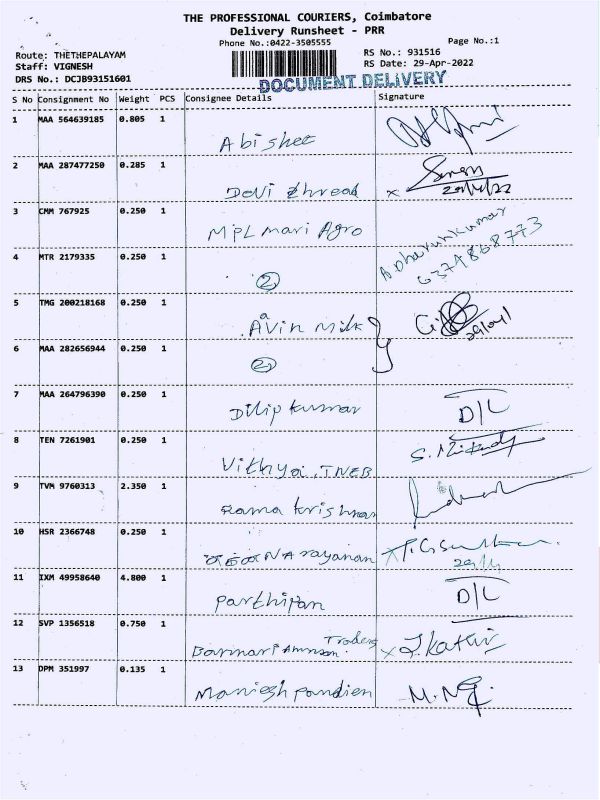 THE PROFESSIONAL COURIERS, Coimbatore
Delivery Runsheet - PRR
Phone No.:0422-3505555 Page No.:1
Route: THETHEPALAYAM RS No.: 931516
Staff: VIGNESH RS Date: 29-Apr-2022
DRS No.: DCJB93151601
DOCUMENT DELIVERY
S No Consignment No Weight PCS Consignee Details Signature
1 MAA 564639185 0.805 1
Abishee
2 MAA 287477250 0.285 1
Devi thread x 29/4/22
3 CMM 767925 0.250 1
MPL Mari Agro
A Dharunkumar
6374868773
4 MTR 2179335 0.250 1
2
5 TMG 200218168 0.250 1
Avin Milk 29/04/
6 MAA 282656944 0.250 1
2
7 MAA 264796390 0.250 1
Dilip kumar D/L
8 TEN 7261901 0.250 1
Vithya, TNEB
9 TVM 9760313 2.350 1
Rama krishnan
10 HSR 2366748 0.250 1
NArayanan x
29/4
11 IXM 49958640 4.800 1
Parthipan D/L
12 SVP 1356518 0.750 1
Bannari Amman Traders x
13 DPM 351997 0.135 1
Manish pandien